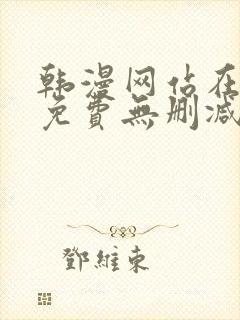 韩漫网站在
免費無删减
鄧維東